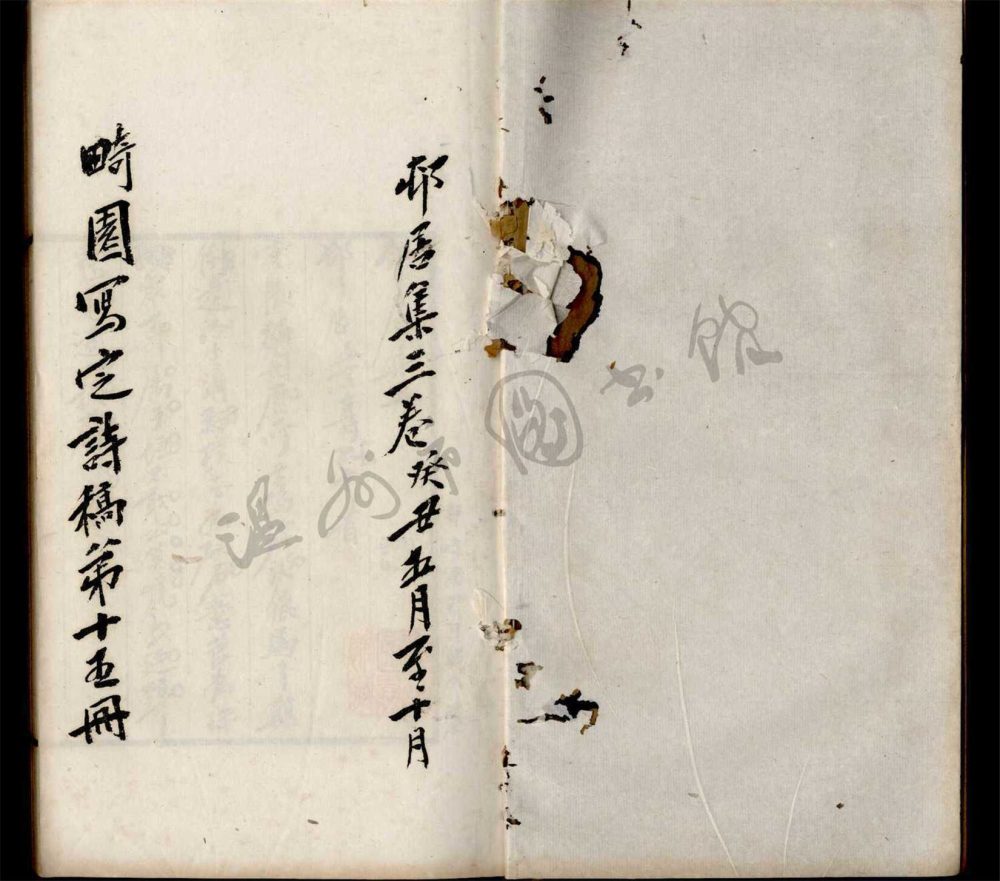 邨居集三卷癸丑五月至十月
畸園写定詩稿第十五冊
温州市圖书館